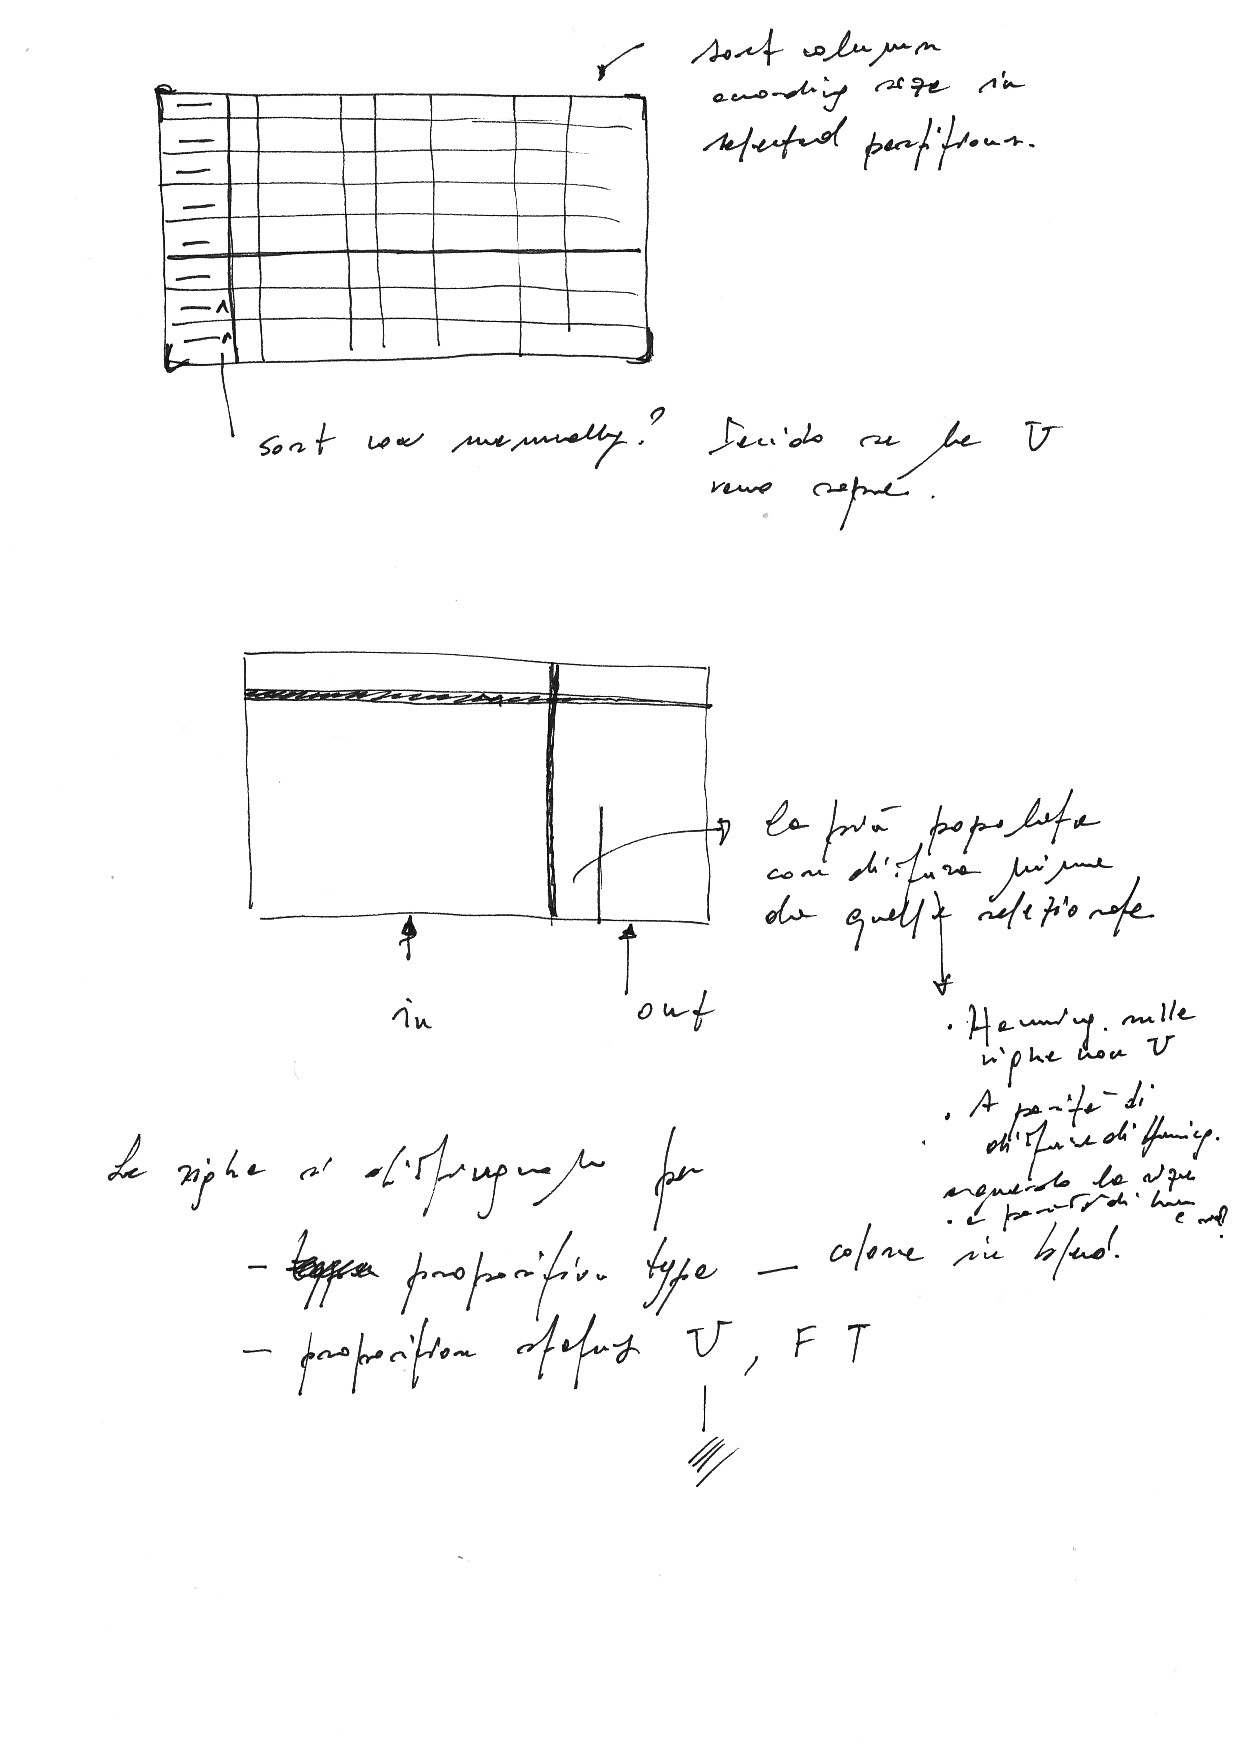 sort column
according size in
selected partitions.
sort row manually? Decido se le U
vanno sopra.
la più popolata
con distanza minima
da quelle selezionate
in
out
. Hamming. sulle
righe non U
. A parità di
distanza di Hamming.
seguendo la riga
. a parità di
Le righe si distinguono per
- proposition type - colore in blend.
- proposition status U, F T